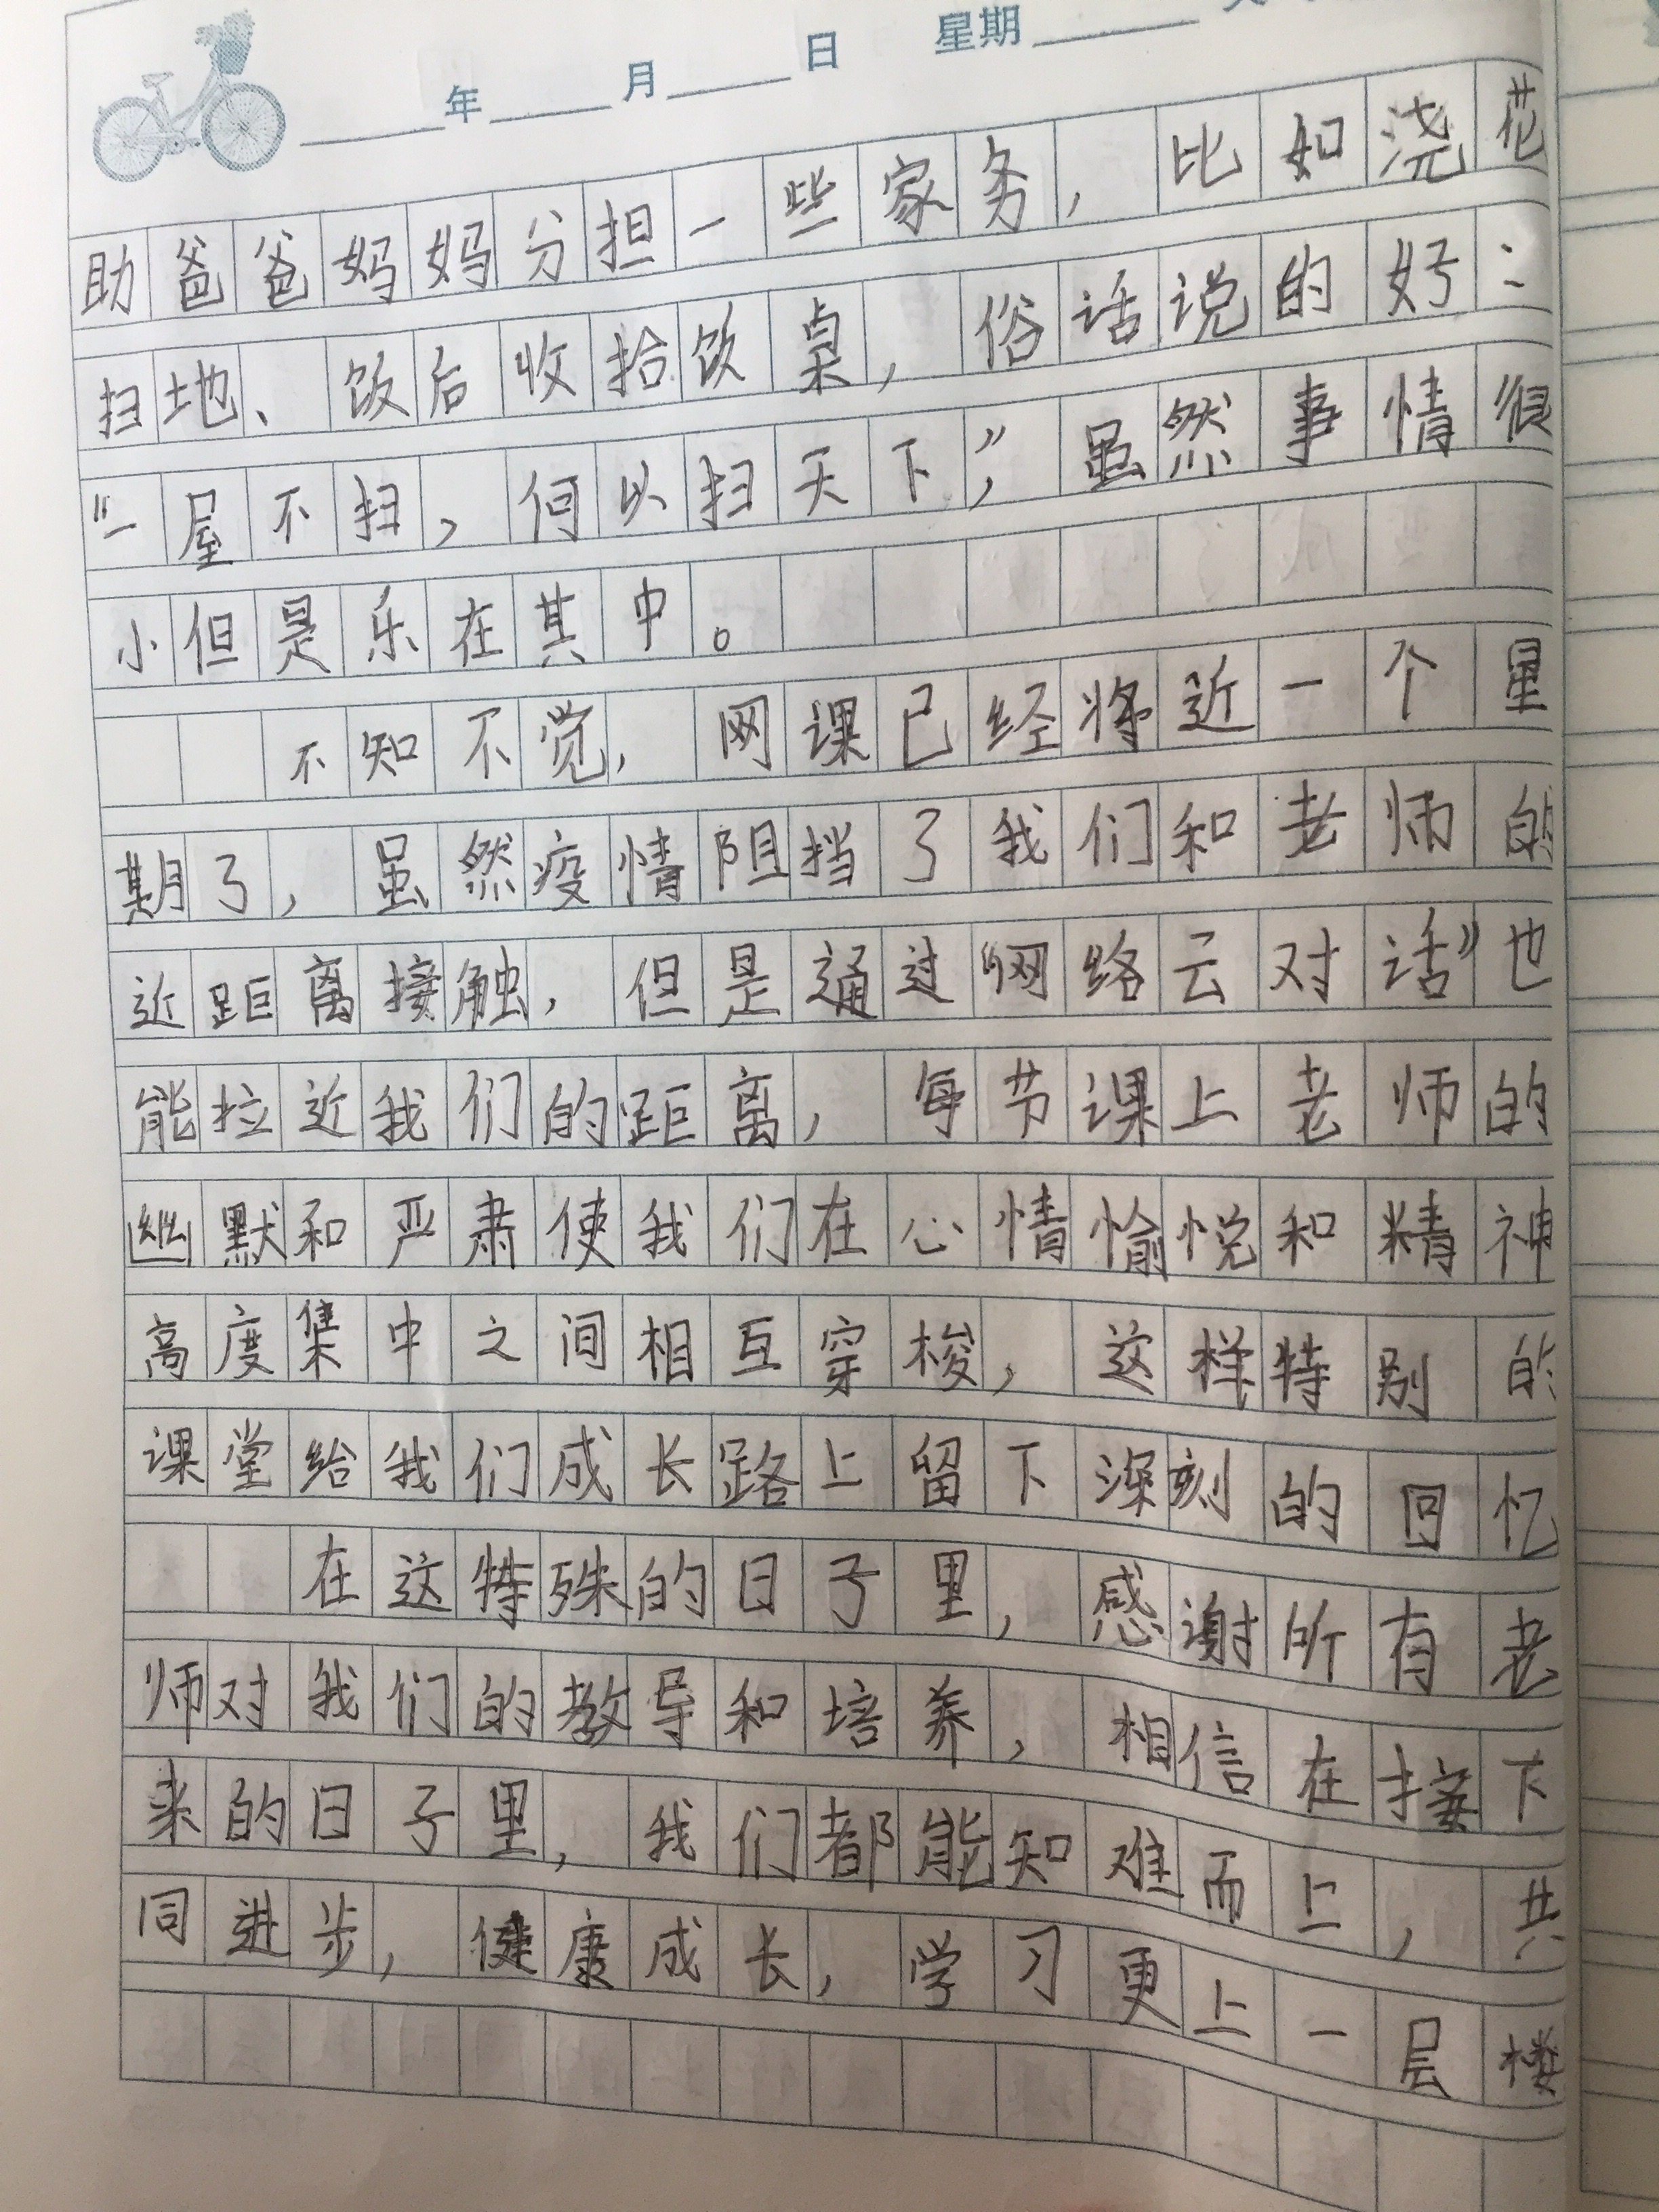 年 月 日 星期
助爸爸妈妈分担一些家务，比如浇花
扫地、饭后收拾饭桌，俗话说的好：
“一屋不扫，何以扫天下”，虽然事情很
小但是乐在其中。
不知不觉，网课已经将近一个星
期了，虽然疫情阻挡了我们和老师的
近距离接触，但是通过“网络云对话”也
能拉近我们的距离，每节课上老师的
幽默和严肃使我们在心情愉悦和精神
高度集中之间相互穿梭，这样特别的
课堂给我们成长路上留下深刻的回忆
在这特殊的日子里，感谢所有老
师对我们的教导和培养，相信在接下
来的日子里，我们都能知难而上，共
同进步，健康成长，学习更上一层楼